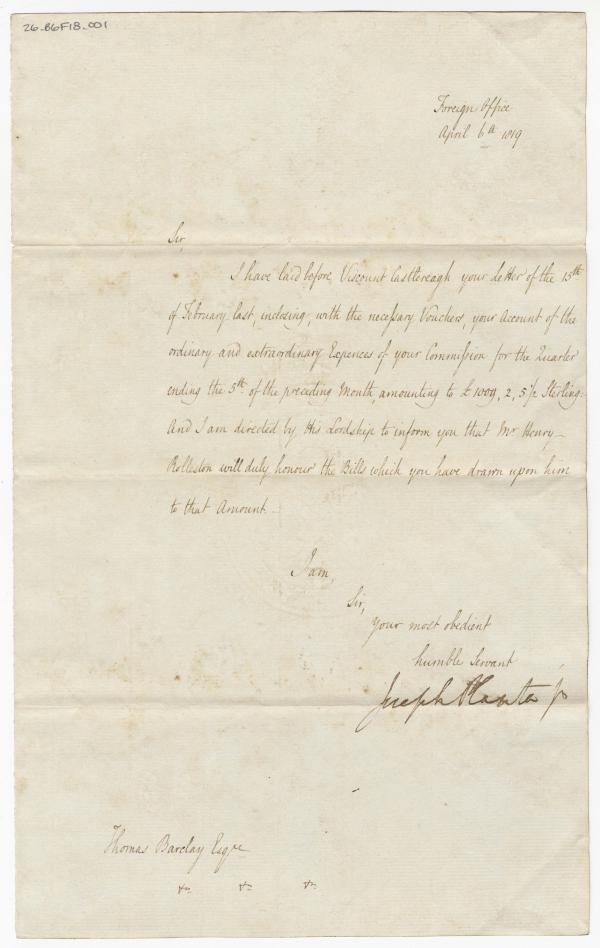 26-B6F18-001
Foreign Office
April 6th 1819
Sir,
I have laid before Viscount Castlereagh your Letter of the 15th
of February last, inclosing, with the necessary Vouchers, your Account of the
ordinary and extraordinary Expences of your Commission for the Quarter
ending the 5th of the preceding Month, amounting to £1009, 2, 5½ Sterling.
And I am directed by His Lordship to inform you that Mr. Henry
Rolleston will duly honour the Bills which you have drawn upon him
to that Amount.
I am,
Sir,
your most obedient
humble Servant
Joseph Planta Jr
Thomas Barclay Esqre
&c &c &c